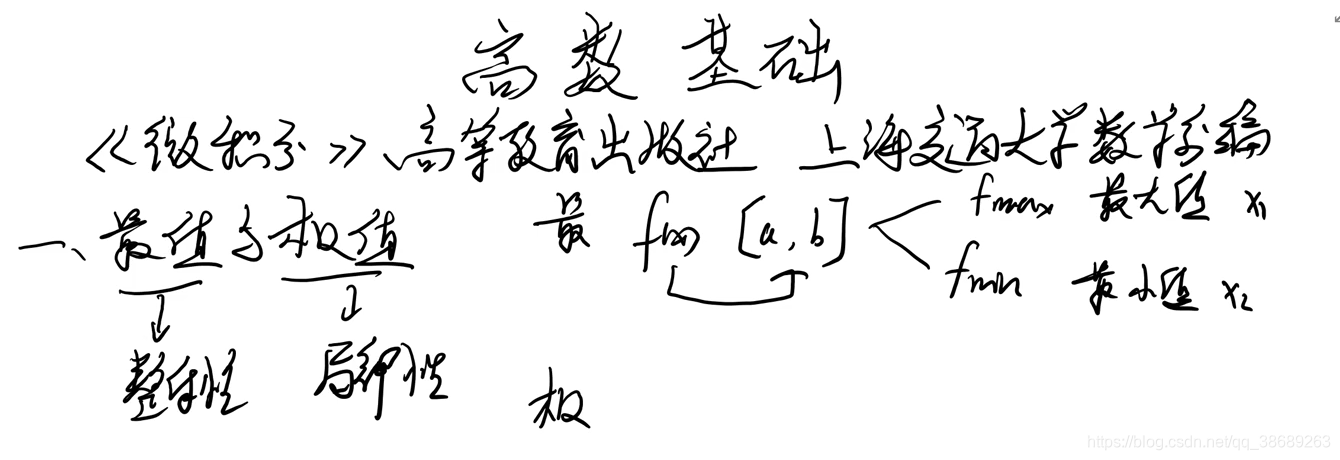 高数 基础
《微积分》高等教育出版社 上海交通大学数学系编
一、最值与极值 最 f(x) [a, b] fmax 最大值 x₁
fmin 最小值 x₂
整体性 局部性 极
https://blog.csdn.net/qq_38689263